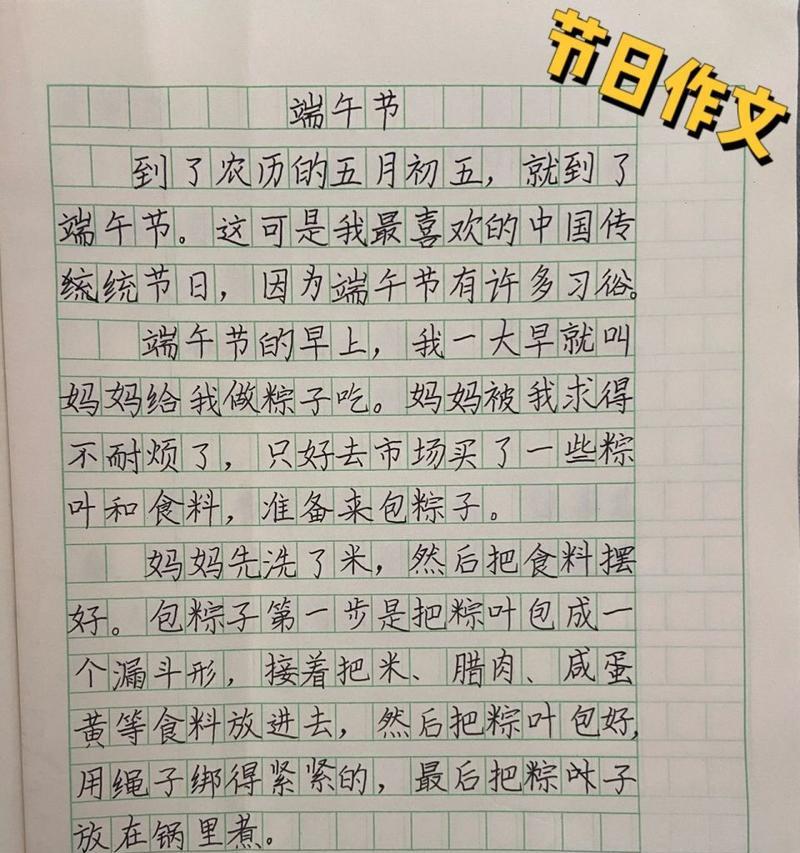 节日作文
端午节
到了农历的五月初五，就到了
端午节。这可是我最喜欢的中国传
统统节日，因为端午节有许多习俗。
端午节的早上，我一大早就叫
妈妈给我做粽子吃。妈妈被我求得
不耐烦了，只好去市场买了一些粽
叶和食料，准备来包粽子。
妈妈先洗了米，然后把食料摆
好。包粽子第一步是把粽叶包成一
个漏斗形，接着把米、腊肉、咸蛋
黄等食料放进去，然后把粽叶包好，
用绳子绑得紧紧的，最后把粽叶子
放在锅里煮。